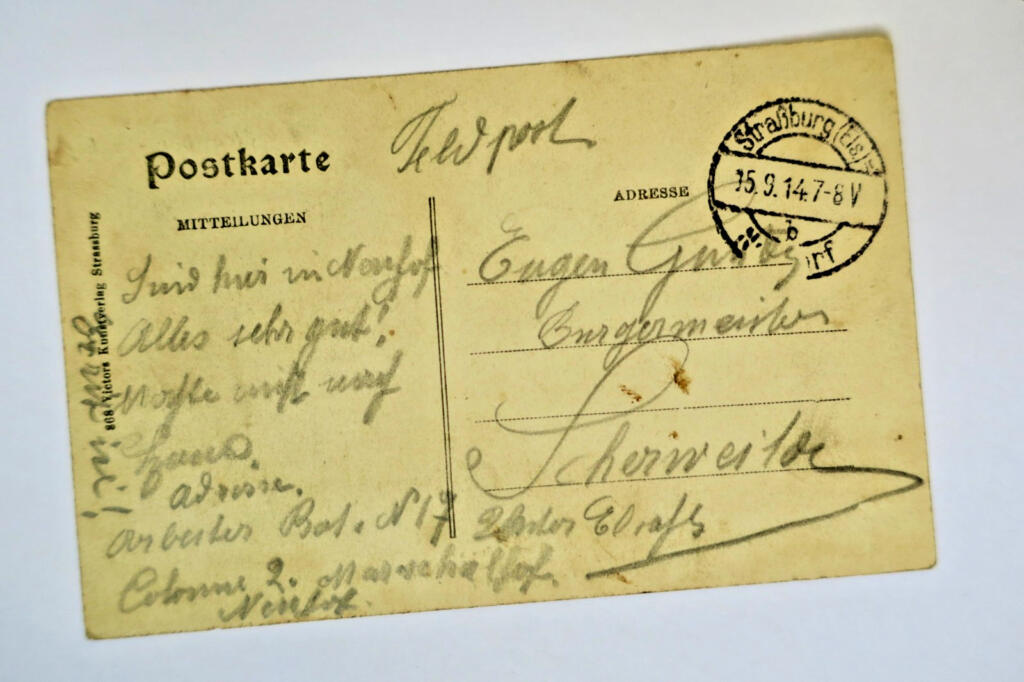 Postkarte
Feldpost
MITTEILUNGEN
ADRESSE
Straßburg (Els)
15.9.14.7-8V
b
rf
868 Victors Kunstverlag Strassburg
Sind hier in Neuhof
Alles sehr gut!
nach
Adresse.
Arbeiter Bat. N 17
Colonne 2. Marschallhof.
Neuhof.
Eugen
Burgermeister
Scherweiler